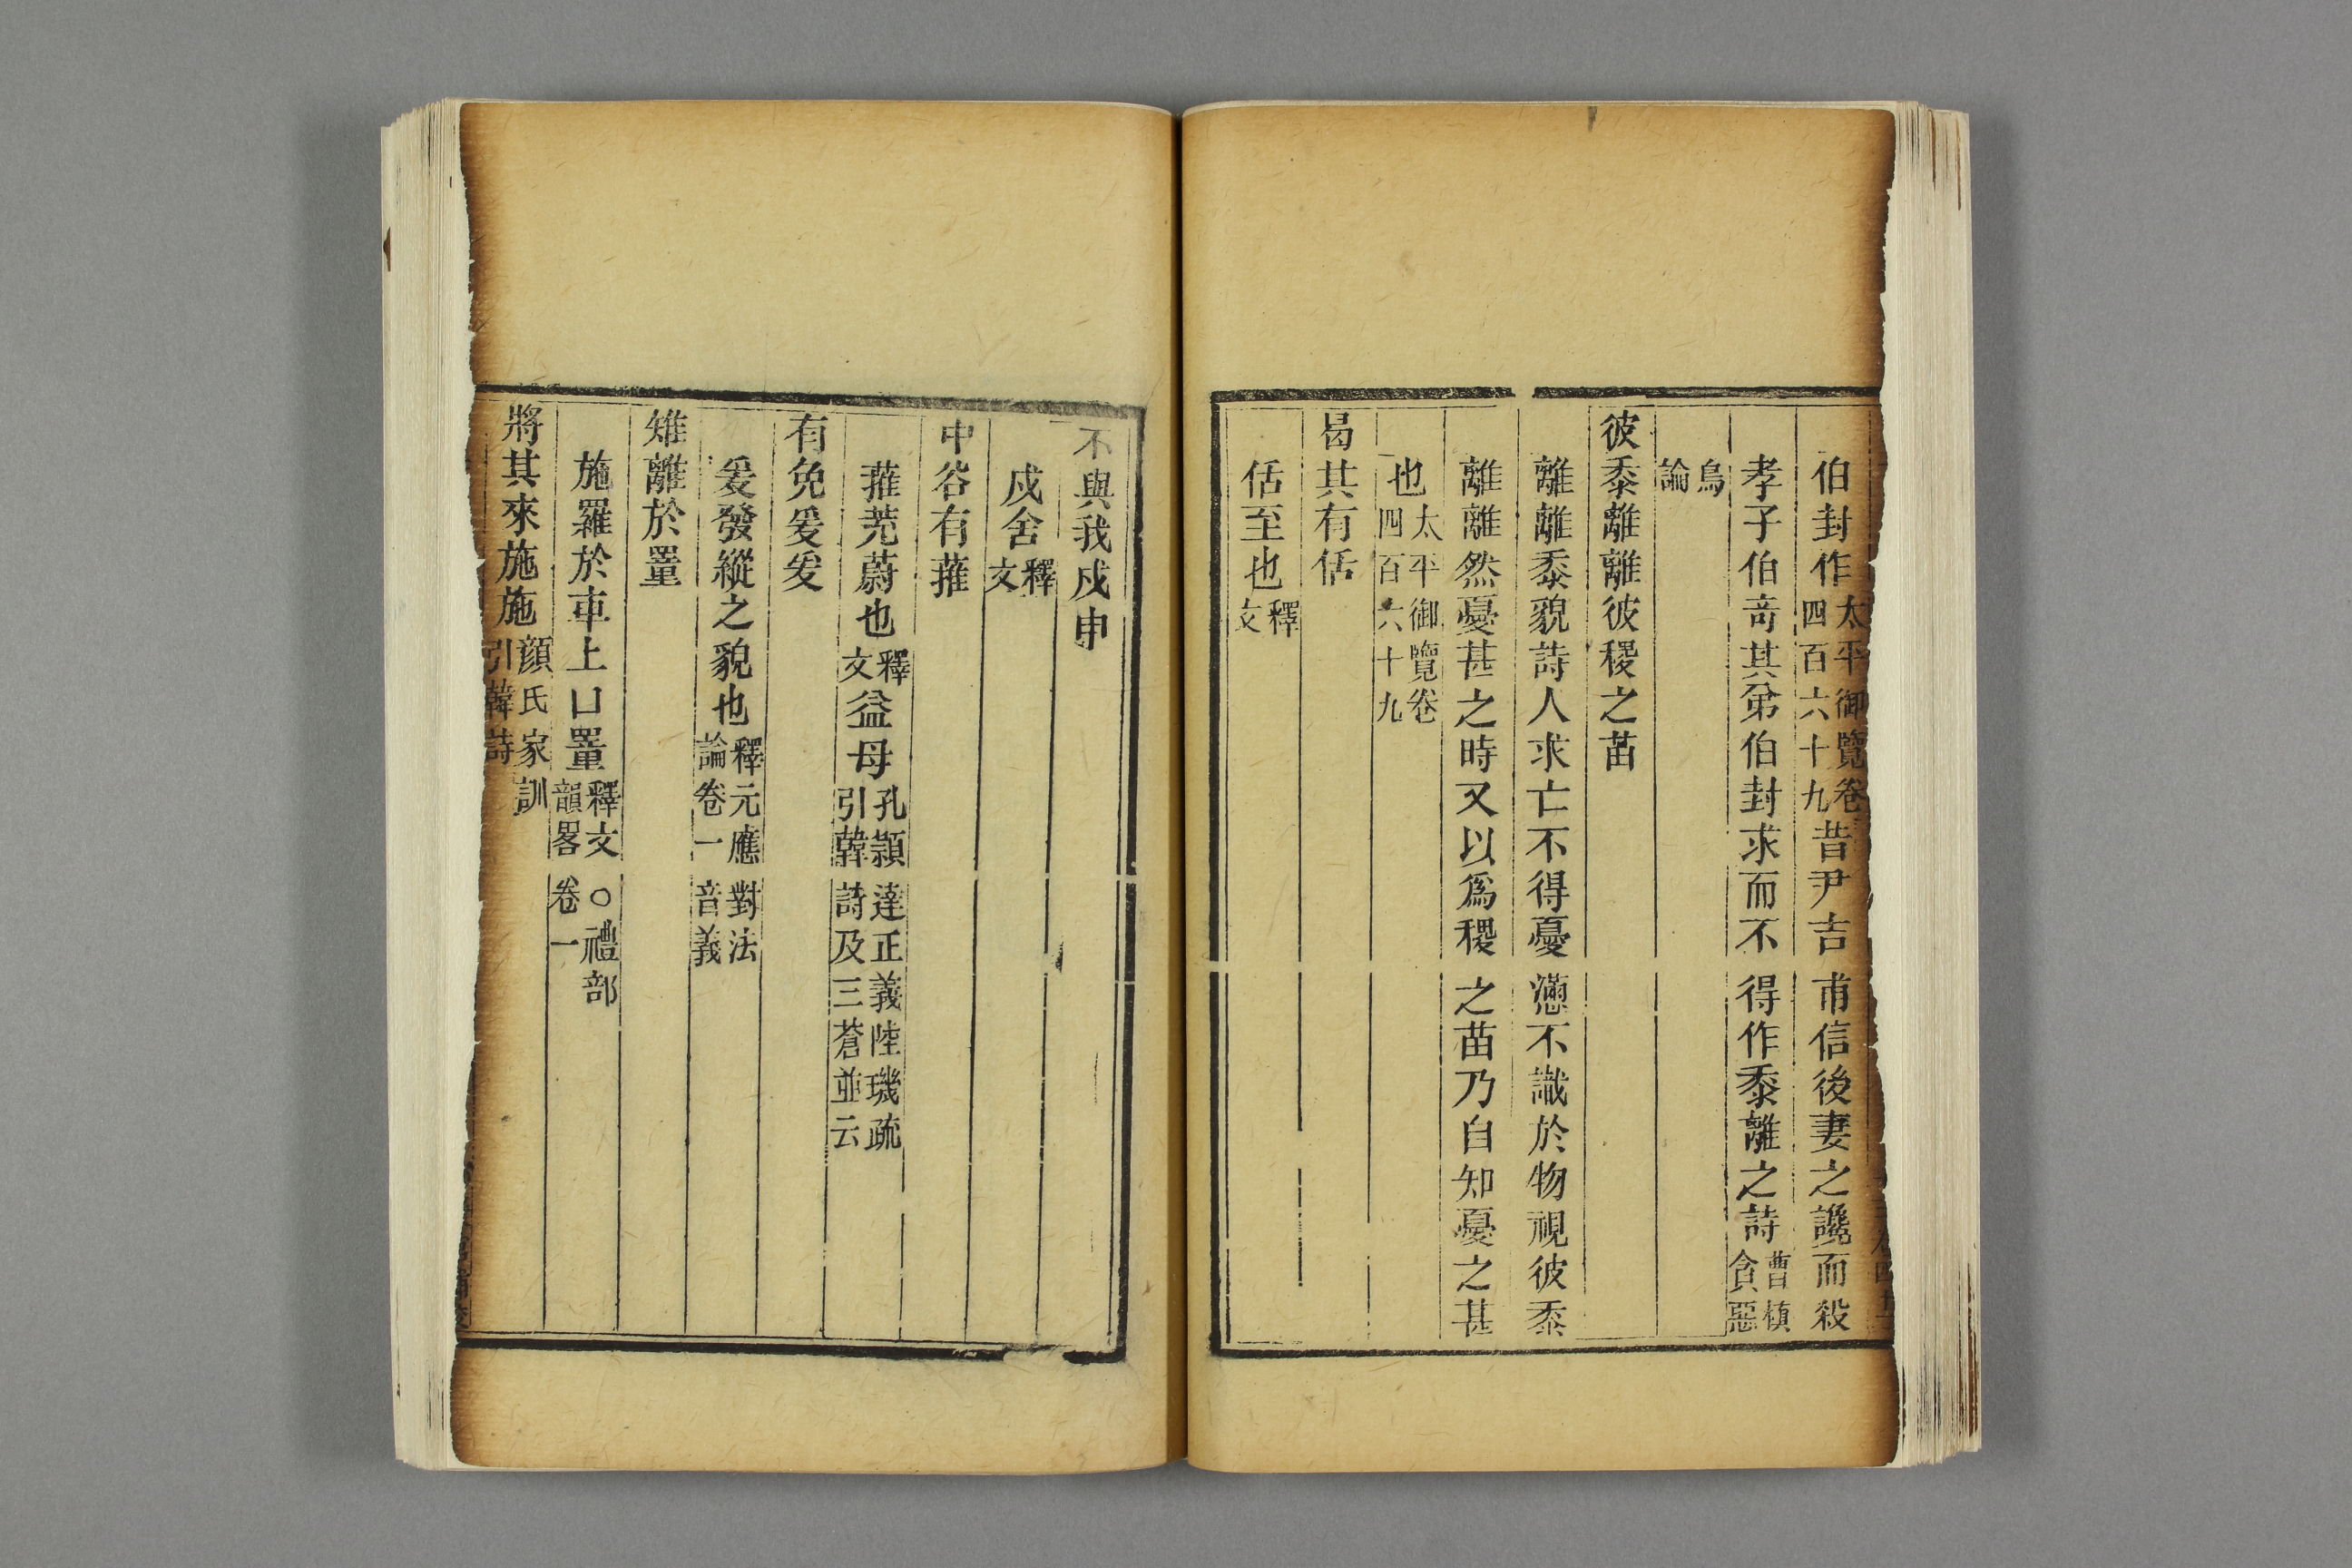 伯封作太平御覽卷四百六十九昔尹吉甫信後妻之讒而殺
孝子伯奇其弟伯封求而不得作黍離之詩曹植貪惡
鳥論
彼黍離離彼稷之苗
離離黍貌詩人求亡不得憂懣不識於物視彼黍
離離然憂甚之時又以爲稷之苗乃自知憂之甚
也太平御覽卷四百六十九
曷其有佸
佸至也釋文
不與我戍申
戍舍釋文
中谷有蓷
蓷茺蔚也釋文益母孔穎達正義陸璣疏引韓詩及三蒼並云
有兔爰爰
爰發縱之貌也釋元應對法論卷一音義
雉離於罿
施羅於車上曰罿釋文○禮部韻畧卷一
將其來施施顔氏家訓引韓詩